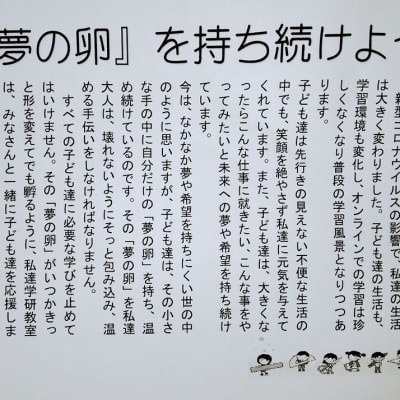 夢の卵』を持ち続けよ
新型コロナウイルスの影響で、私達の生活
は大きく変わりました。子ども達の生活も、
学習環境も変化し、オンラインでの学習は珍
しくなくなり普段の学習風景となりつつあ
ります。
子ども達は先行きの見えない不便な生活の
中でも、笑顔を絶やさず私達に元気を与えて
くれています。また、子ども達は、大きくな
ったらこんな仕事に就きたい、こんな事をや
ってみたいと未来への夢や希望を持ち続け
ています。
今は、なかなか夢や希望を持ちにくい世の中
のように思いますが、子ども達は、その小さ
な手の中に自分だけの「夢の卵」を持ち、温
め続けているのです。その「夢の卵」を私達
大人は、壊れないようにそっと包み込み、温
める手伝いをしなければなりません。
すべての子ども達に必要な学びを止めて
はいけません。その「夢の卵」がいつかきっ
と形を変えてでも孵るように、私達学研教室
は、みなさんと一緒に子ども達を応援しま